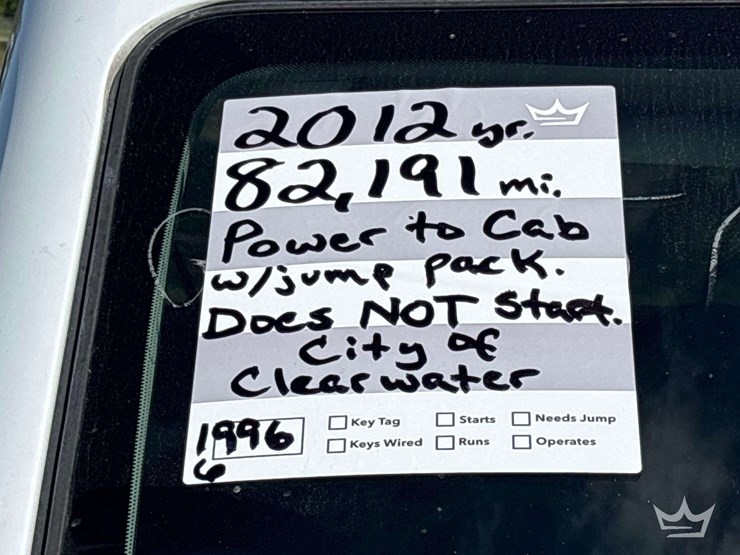 2012 yr.
82,191 mi.
Power to Cab
w/jump pack.
Does NOT Start.
City of
Clearwater
1996
6
Key Tag Starts Needs Jump
Keys Wired Runs Operates